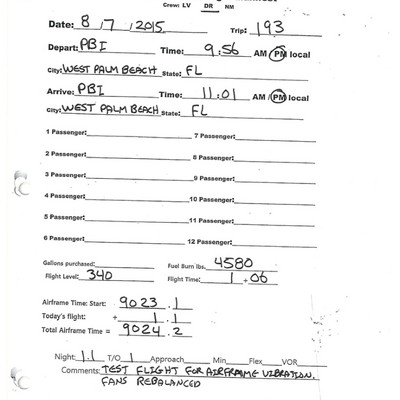 Crew: LV DR NM
Date: 8 / 7 / 2015 Trip: 193
Depart: PBI Time: 9:56 AM / PM local
City: WEST PALM BEACH State: FL
Arrive: PBI Time: 11:01 AM / PM local
City: WEST PALM BEACH State: FL
1 Passenger: 7 Passenger:
2 Passenger: 8 Passenger:
3 Passenger: 9 Passenger:
4 Passenger: 10 Passenger:
5 Passenger: 11 Passenger:
6 Passenger: 12 Passenger:
Gallons purchased: Fuel Burn lbs. 4580
Flight Level: 340 Flight Time: 1 + 06
Airframe Time: Start: 9023 .1
Today's flight: + 1 .1
Total Airframe Time = 9024 .2
Night: 1.1 T/O 1 Approach Min Flex VOR
Comments: TEST FLIGHT FOR AIRFRAME VIBRATION.
FANS REBALANCED